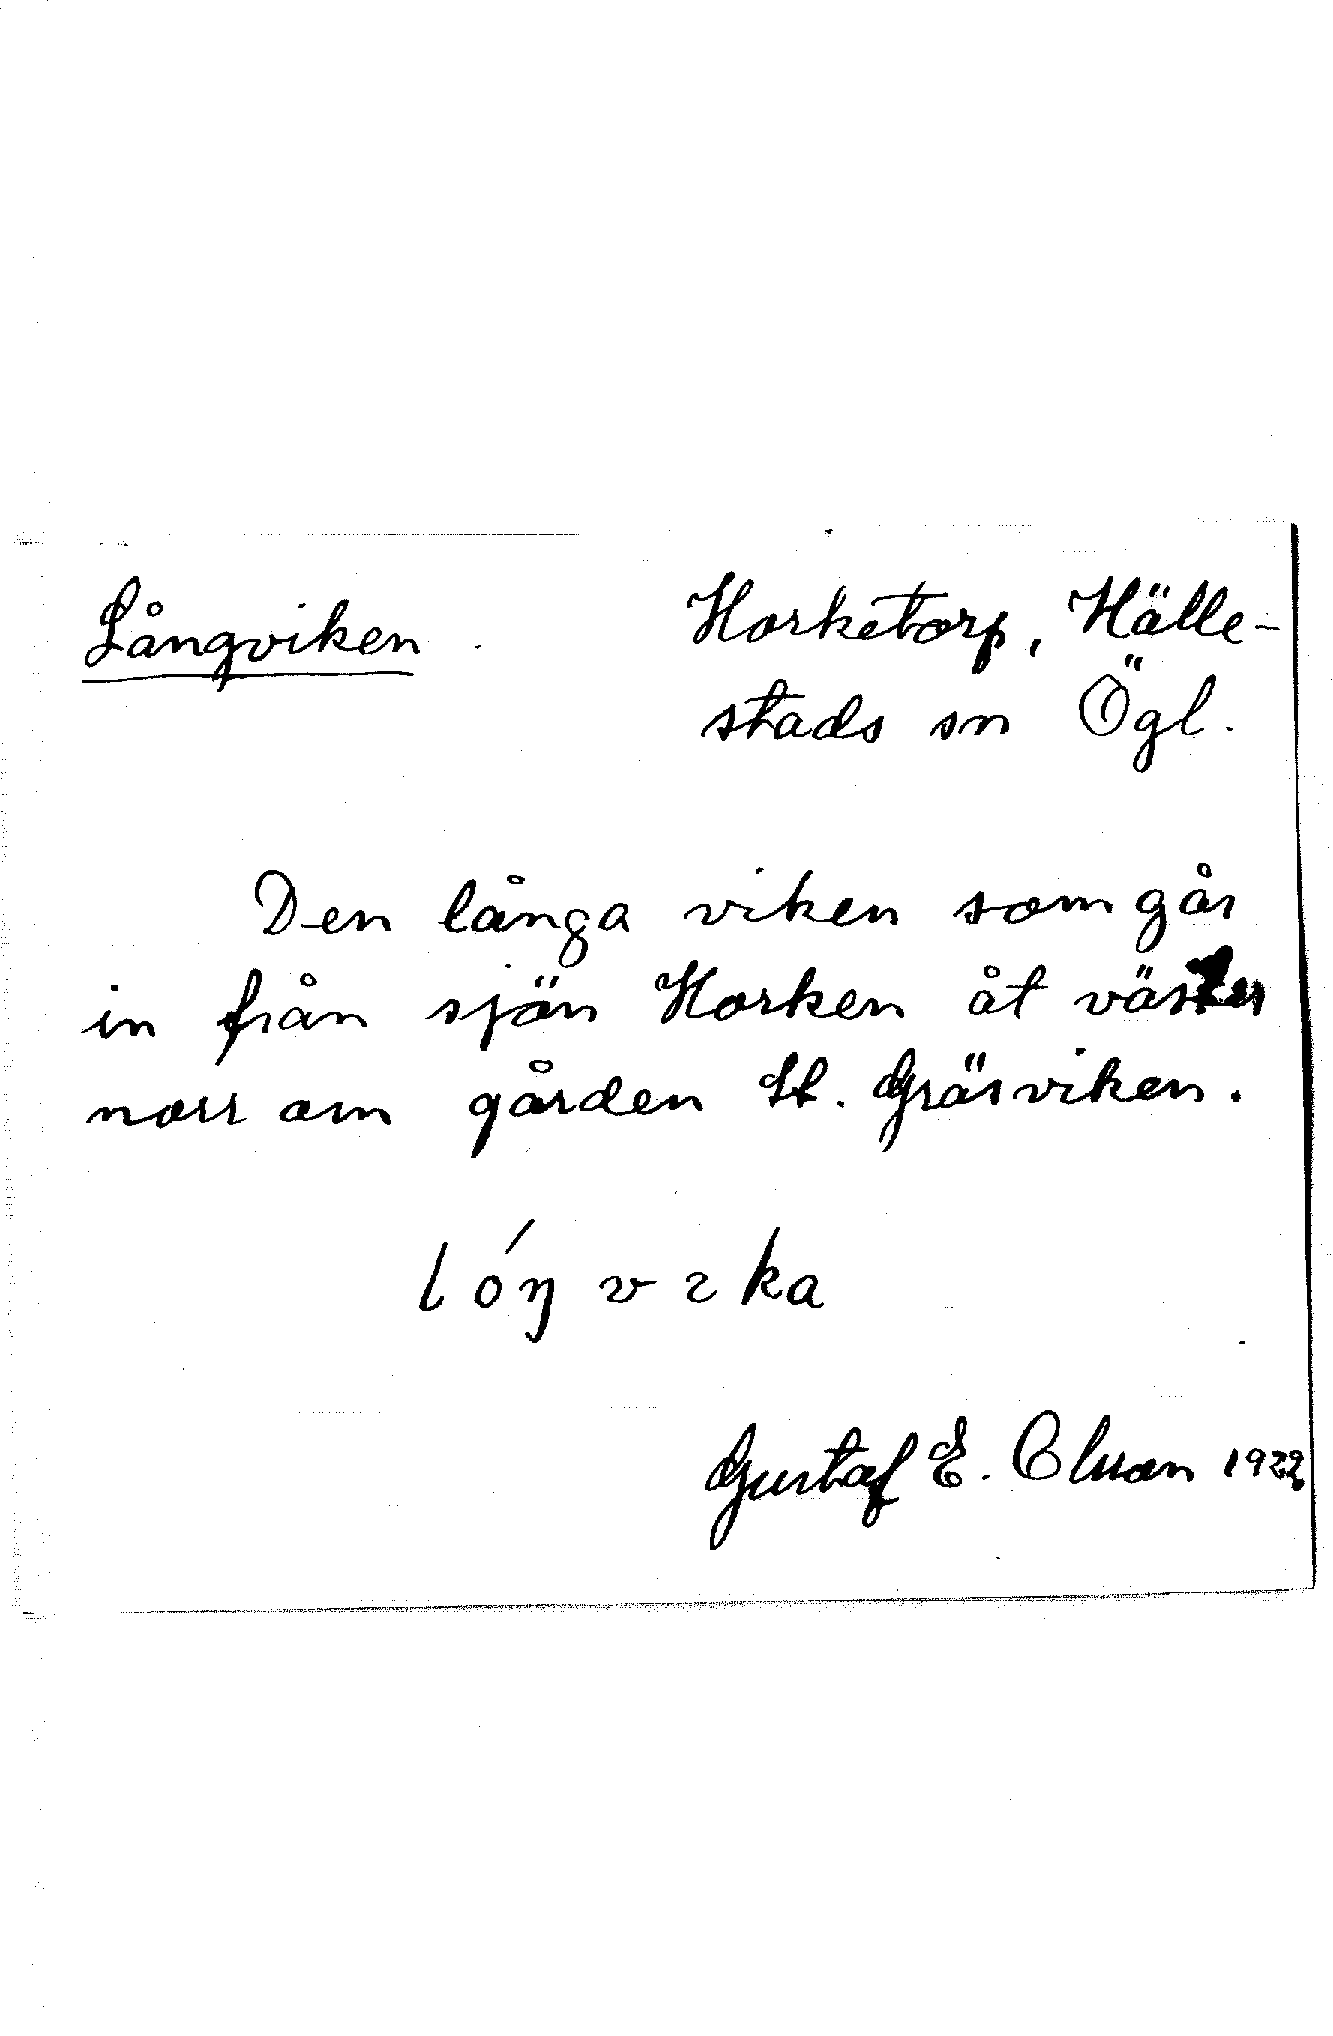 Långviken
Horketorp, Hälle-
stads sn Ögl.
Den långa viken som går
in från sjön Horken åt väster
norr om gården St. Gräsviken.
lóŋ vıka
Gustaf E. Olsson 1922